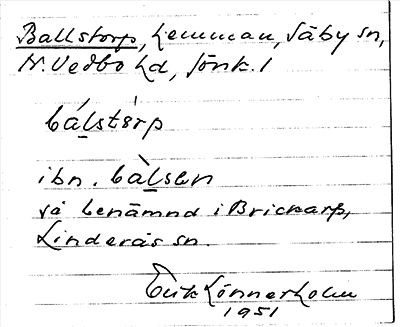 Ballstorp, hemman, Säby sn,
N. Vedbo hd, Jönk. l
bálstòrp
ibn. bàlsen
så benämnd i Brickarp,
Linderås sn.
Erik Lönnerholm
1951